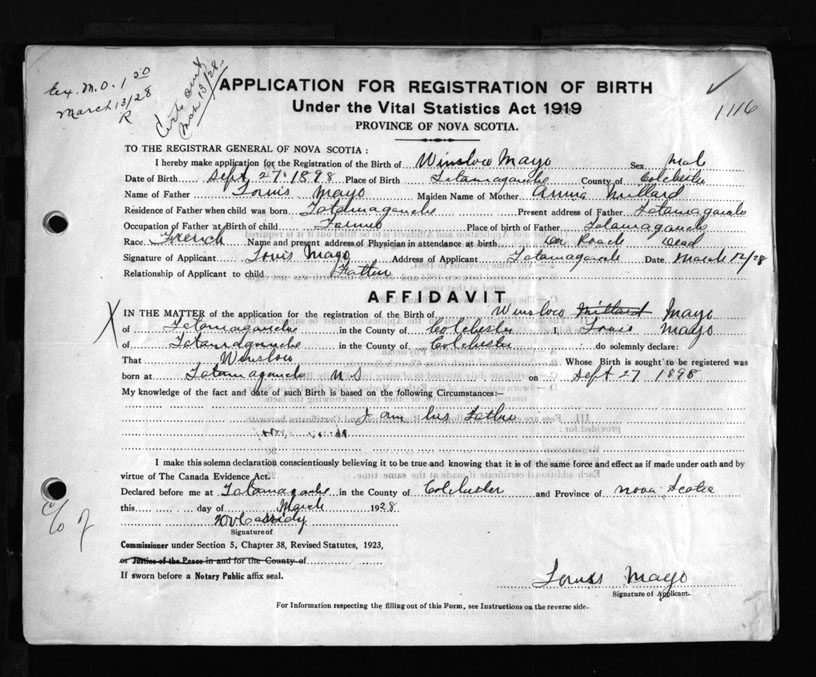 Ex. M.O. 1.50
March 13/28
R
Cert sent
Mar 13/28.
1116
APPLICATION FOR REGISTRATION OF BIRTH
Under the Vital Statistics Act 1919
PROVINCE OF NOVA SCOTIA.
TO THE REGISTRAR GENERAL OF NOVA SCOTIA :
I hereby make application for the Registration of the Birth of Winslow Mayo Sex Male
Date of Birth Sept 27. 1898 Place of Birth Tatamagouche County of Colchester
Name of Father Louis Mayo Maiden Name of Mother Annie Millard
Residence of Father when child was born Tatamagouche Present address of Father Tatamagouche
Occupation of Father at Birth of child Farmer Place of birth of Father Tatamagouche
Race French Name and present address of Physician in attendance at birth Dr Roach Dead
Signature of Applicant Louis Mayo Address of Applicant Tatamagouche Date March 12/28
Relationship of Applicant to child Father
AFFIDAVIT
IN THE MATTER of the application for the registration of the Birth of Winslow Millard Mayo
of Tatamagouche in the County of Colchester I, Louis Mayo
of Tatamagouche in the County of Colchester do solemnly declare:
That Winslow Whose Birth is sought to be registered was
born at Tatamagouche N S on Sept 27 1898
My knowledge of the fact and date of such Birth is based on the following Circumstances:—
I am his Father
I make this solemn declaration conscientiously believing it to be true and knowing that it is of the same force and effect as if made under oath and by
virtue of The Canada Evidence Act.
Declared before me at Tatamagouche in the County of Colchester and Province of Nova Scotia
this day of March 1928
Cassidy
Signature of
Commissioner under Section 5, Chapter 38, Revised Statutes, 1923,
or Justice of the Peace in and for the County of
If sworn before a Notary Public affix seal.
Louis Mayo
Signature of Applicant.
For Information respecting the filling out of this Form, see Instructions on the reverse side.